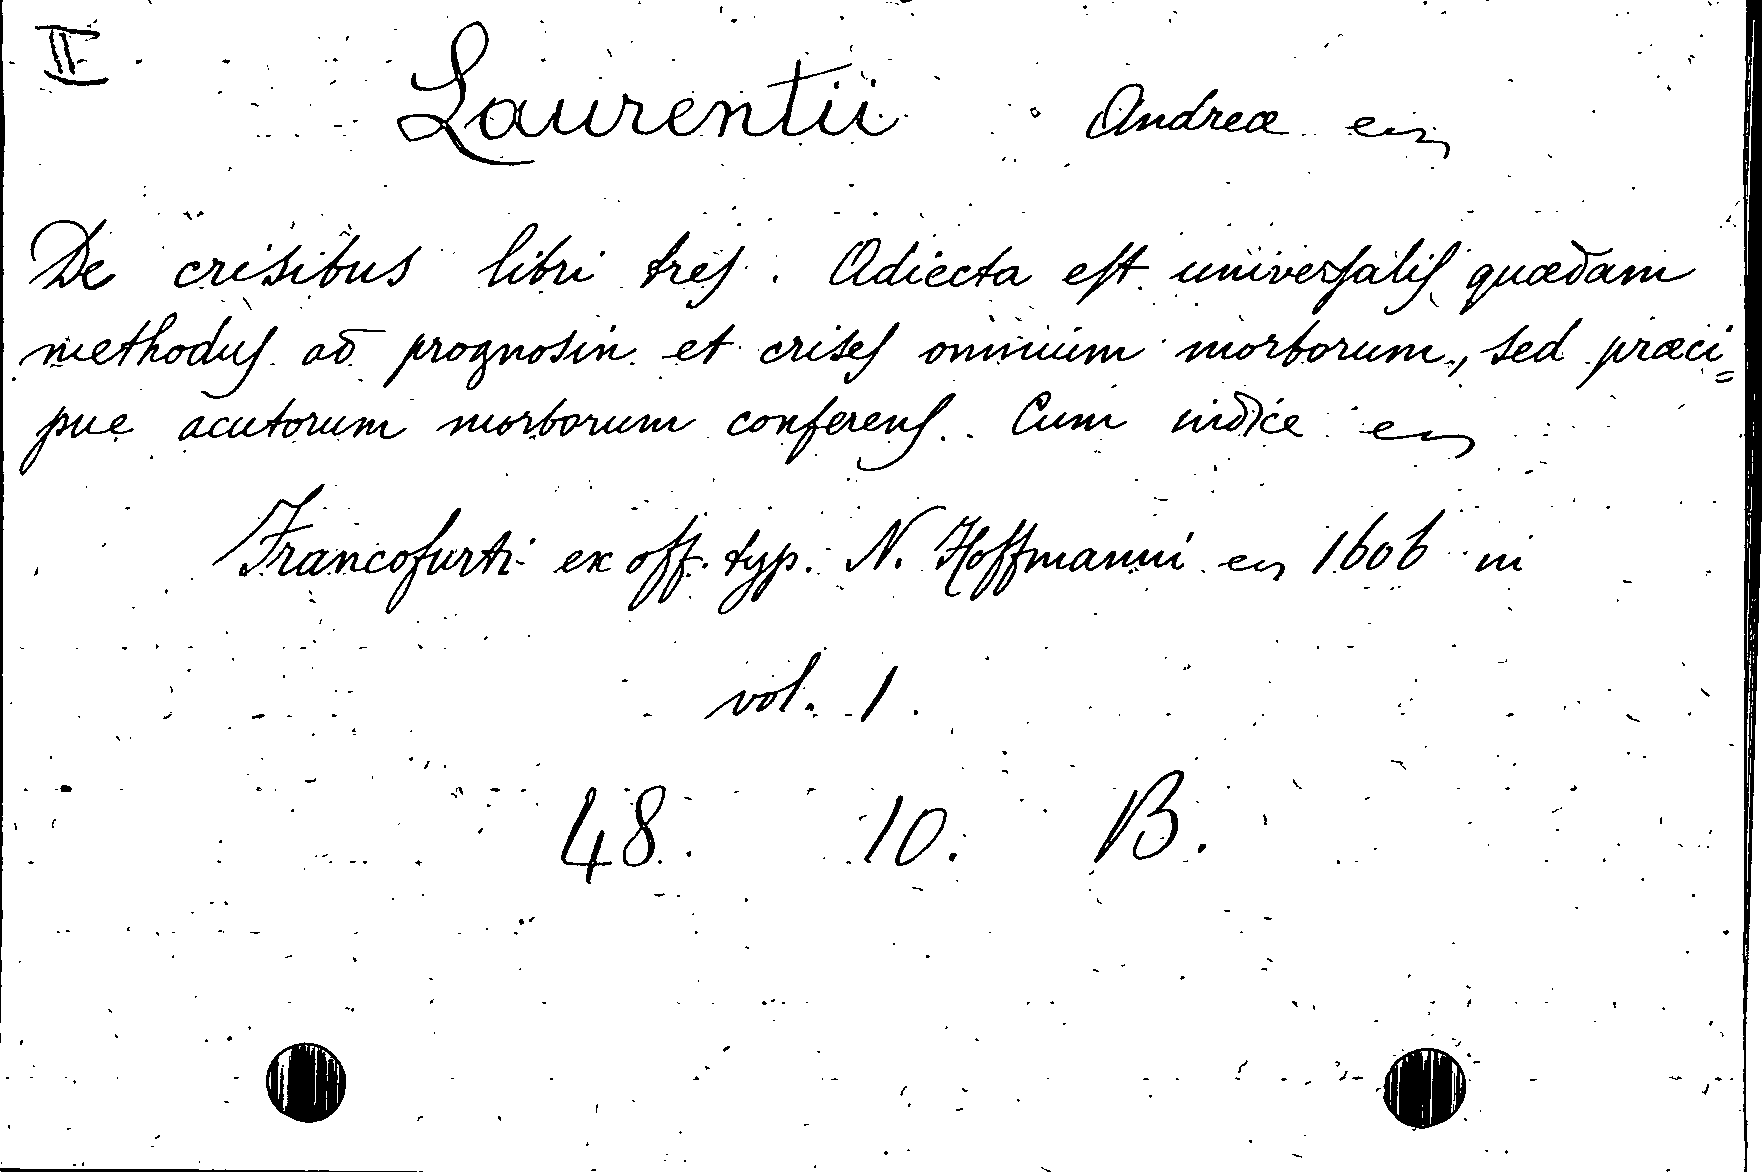 II
Laurentii Andreæ
De crisibus libri tres. Adiecta est universalis quædam
methodus ad prognosin et crises omnium morborum, sed præci=
pue acutorum morborum conferens. Cum indice
Francofurti ex off. typ. N. Hoffmanni 1606 in
vol. 1.
48. 10. B.